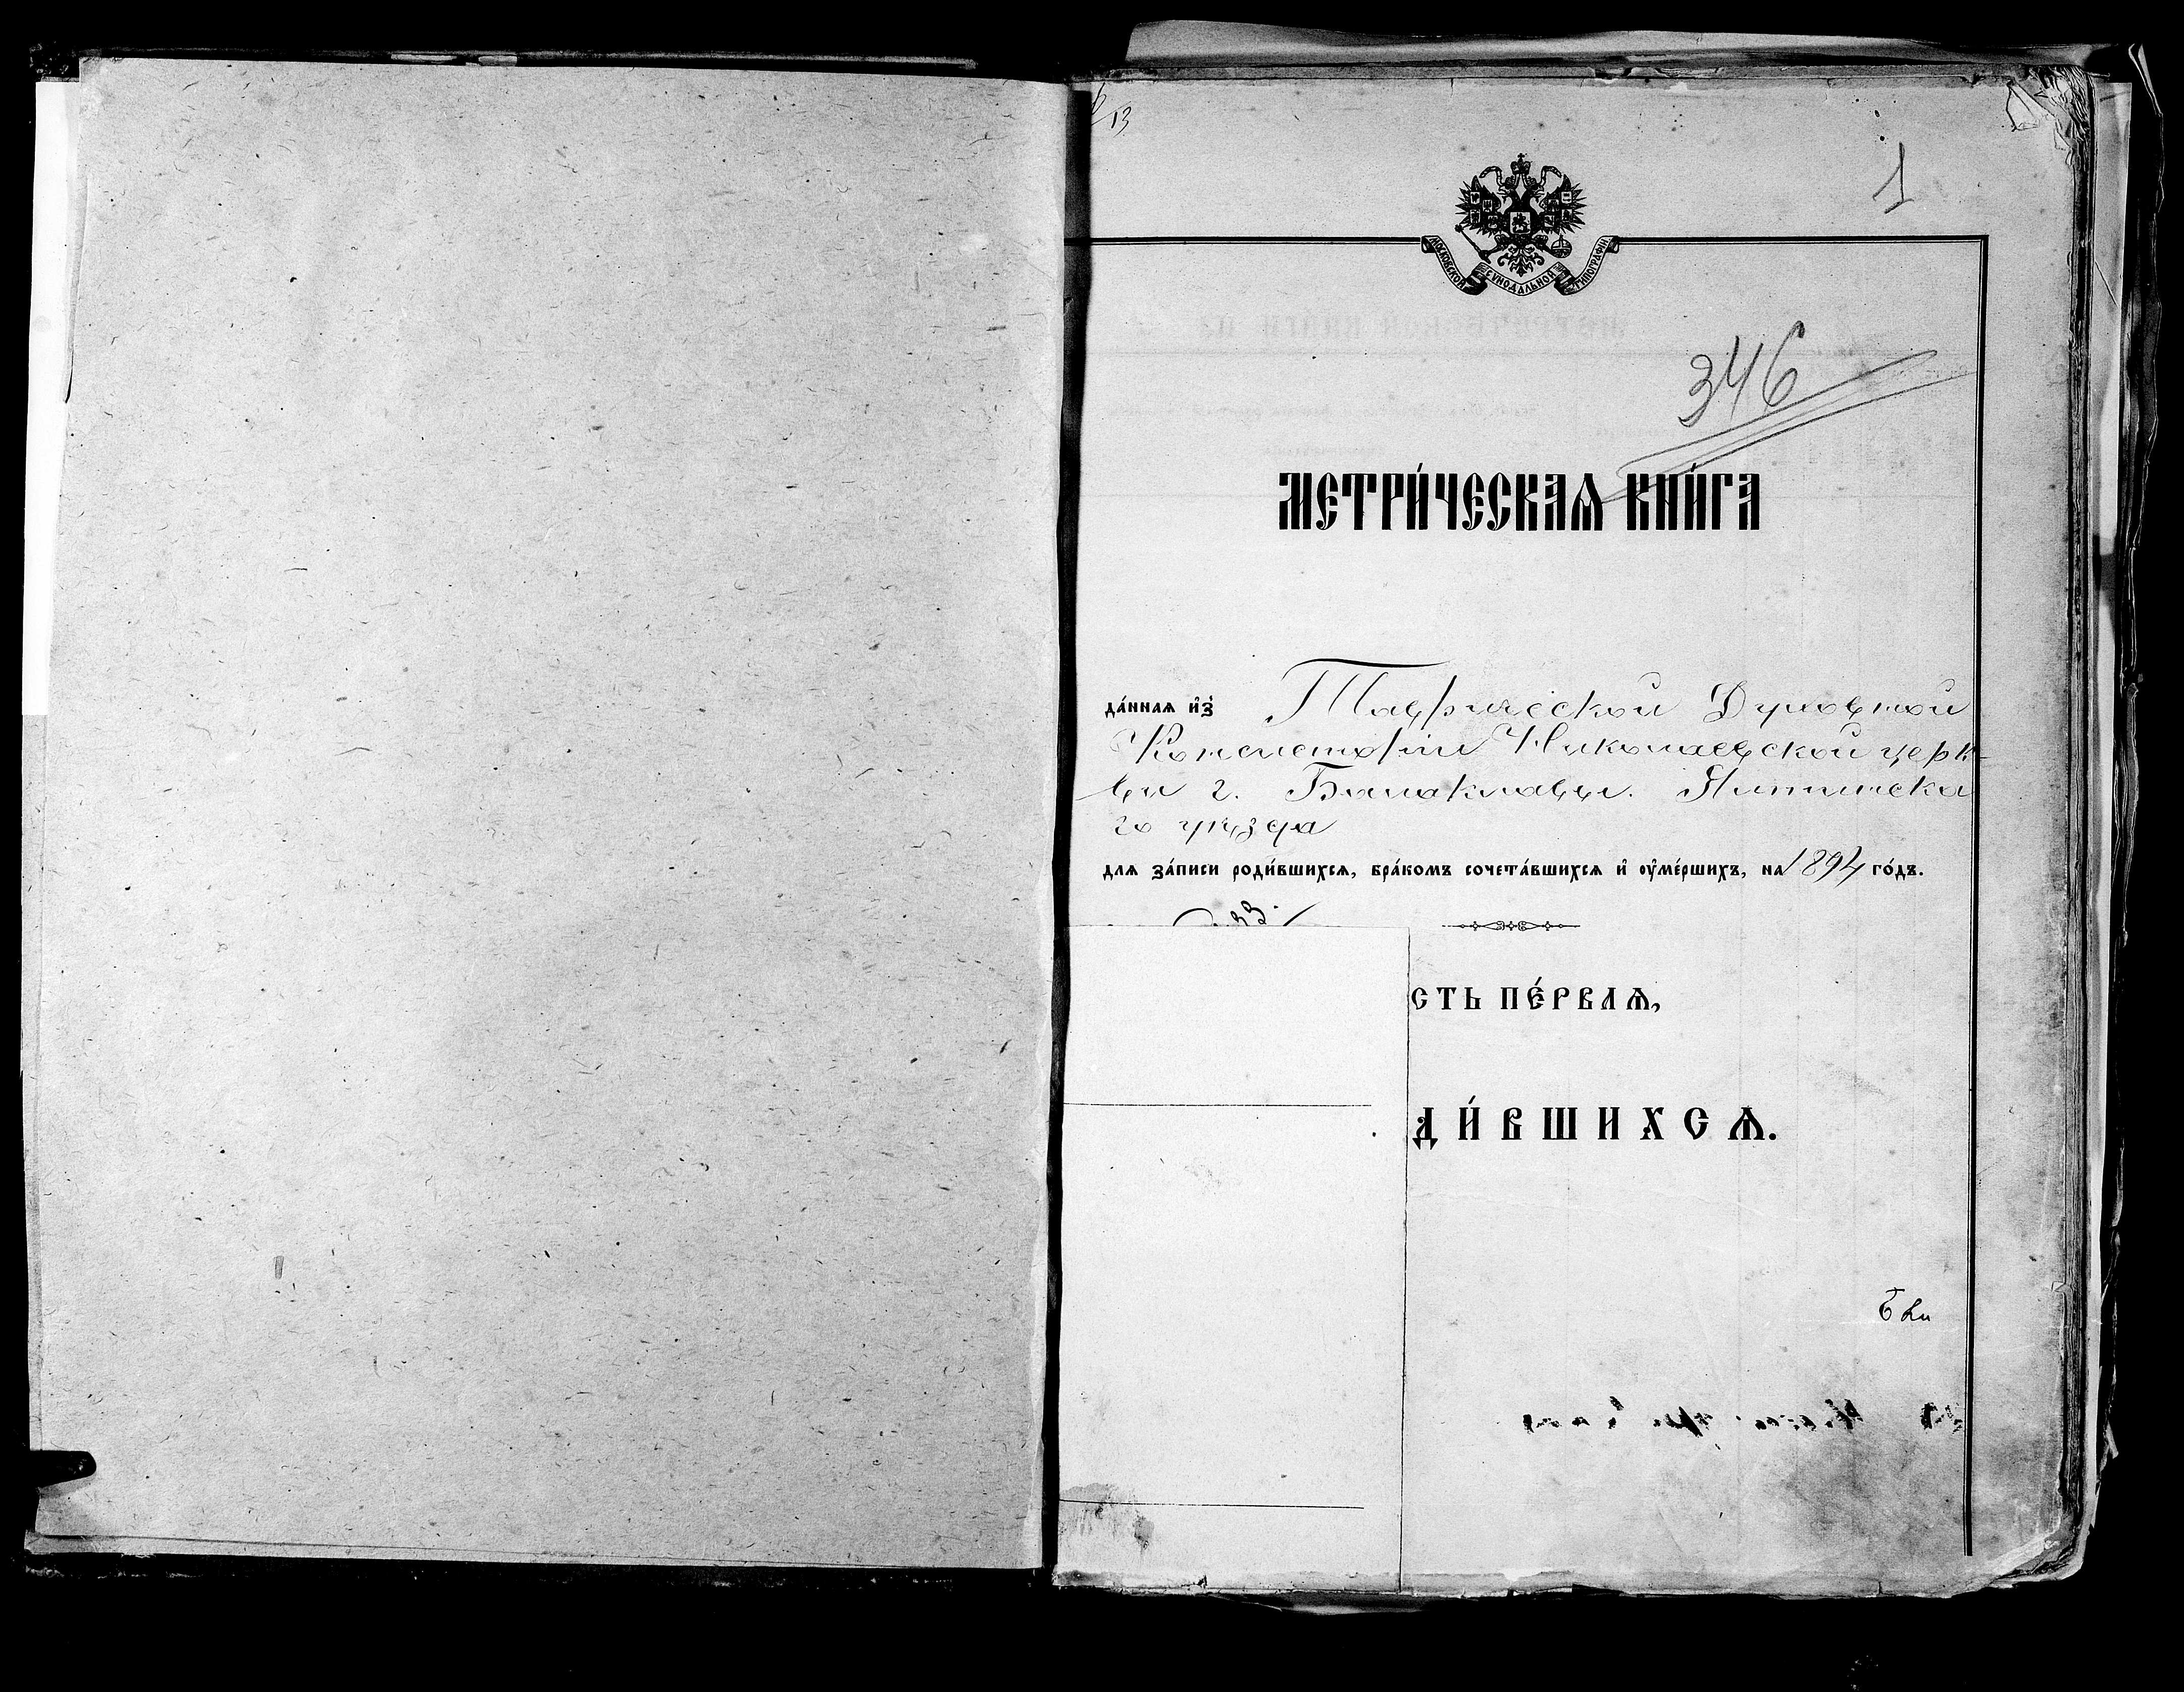 13
1
МОСКОВСКОЙ СѴНОДАЛЬНОЙ ТИПОГРАФІИ
346
МЕТРИ́ЧЕСКАѦ КНИ́ГА
да́ннаѧ и҆з̾ Таврической Духовной
Консисторіи Николаевской церк-
ви г. Балаклавы. Ялтинска
го уѣзда
длѧ за́писи роди́вшихсѧ, бра́комъ сочета́вшихсѧ и҆ ᲂу҆ме́ршихъ, на 1894 го́дъ.
СТЬ ПЕ́РВАѦ,
ДИ́ВШИХСѦ.